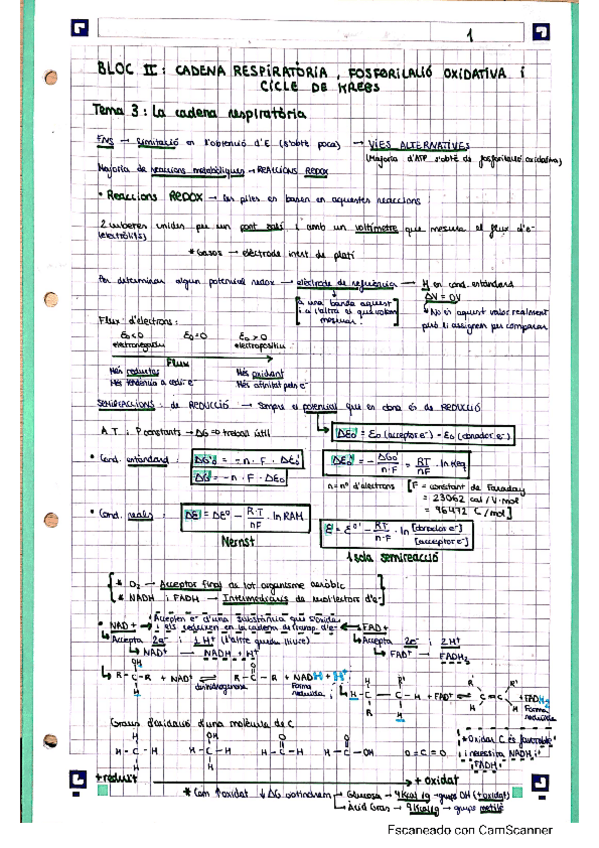 1
BLOC II: CADENA RESPIRATÒRIA, FOSFORILACIÓ OXIDATIVA i
CICLE DE KREBS
Tema 3: La cadena respiratòria
→ limitació en l'obtenció d'E (s'obté poca) → VIES ALTERNATIVES
(Majoria d'ATP s'obté de fosforilació oxidativa)
Majoria de reaccions metabòliques → REACCIONS REDOX
• Reaccions REDOX → Les piles en basen en aquestes reaccions
2 unides per un pont salí i amb un voltímetre que mesura el flux d'e-
(electròlits)
* Gasos → elèctrode inert de platí
Per determinar algun potencial redox → elèctrode de referència → H en cond. estàndard
ΔV = 0V
[a una banda aquest
i a l'altra el que volem
mesurar.]
* No és aquest valor realment
però li assignem per comparar
Flux d'electrons:
E0<0 E0=0 E0>0
electronegatiu electropositiu
Flux
Més reductor Més oxidant
Més tendència a cedir e- Més afinitat pels e-
SEMIREACCIONS: de REDUCCIÓ → Sempre el potencial que en dona és de REDUCCIÓ
A T i P constants → ΔG = 0 treball útil
ΔE0 = E0 (acceptor e-) - E0 (donador e-)
• Cond. estàndard: ΔG0' = -n · F · ΔE0'
ΔG = -n · F · ΔE0
ΔE0' = - ΔG0' / n·F = RT / nF · ln Keq
n = nº d'electrons [F = constant de Faraday
= 23062 cal / V·mol
= 96472 C / mol]
• Cond. reals: ΔE = ΔE0' - R·T / nF · ln RAM
Nernst
E = E0' - RT / n·F · ln [donador e-] / [acceptor e-]
1 sola semireacció
* O2 → Acceptor final de tot organisme aeròbic
* NADH i FADH → Intermediaris de col·lectors d'e-
• NAD+ → Accepten e- d'una substància que s'oxida ← FAD+
i els segueixen en la cadena de transp. d'e-
Accepta 2e- i 1H+ (l'altre queda lliure) Accepta 2e- i 2H+
NAD+ → NADH + H+ FAD+ → FADH2
OH O
R-C-R + NAD+ ⇌ R-C-R + NADH + H+
H
deshidrogenasa Forma reduïda
H R'
H-C-C-H + FAD+ ⇌ C=C + FADH2
R H
Forma
reduïda
Graus d'oxidació d'una molècula de C
H OH O O
H-C-H H-C-H H-C-H H-C-OH O=C=O
H H
* Oxidar C és favorable
i necessita NADH i
FADH
+ reduït → + oxidat
* Com ↑ oxidat ↓ ΔG obtindrem → Glucosa → 4Kcal/g → grups OH (+ oxidat)
→ Àcid Gras → 9Kcal/g → grups metilè
Escaneado con CamScanner